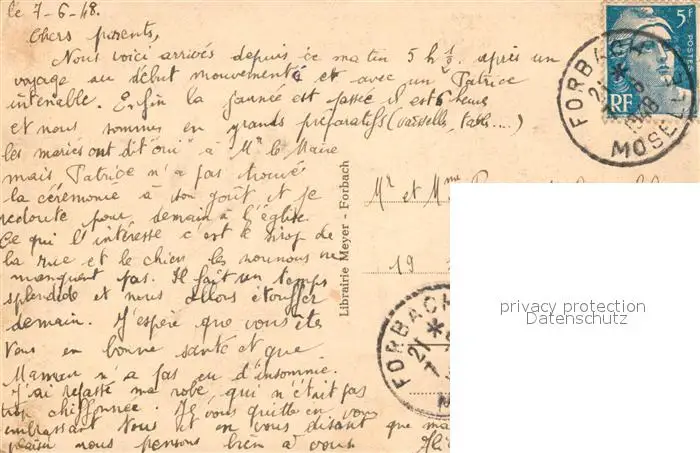 le 7-6-48.
Chers parents,
Nous voici arrivés depuis ce matin 5 h ½ après un
voyage au début mouvementé et avec un Patrice
intenable. Enfin la journée est passée il est 6 heures
et nous sommes en grands préparatifs (vaisselle, table....)
les mariés ont dit "oui" à Mr le Maire
mais Patrice n'a pas trouvé
la cérémonie à son goût et je
redoute pour demain à l'église.
Ce qui l'intéresse c'est le de
la rue et le chien les nounous ne
manquent pas. Il fait un temps
splendide et nous allons étouffer
demain. J'espère que vous êtes
tous en bonne santé et que
Maman n'a pas eu d'insomnie.
J'ai repassé ma robe, qui n'était pas
trop chiffonnée. Je vous quitte en vous
embrassant tous et en vous disant que
nous pensons bien à vous
Librairie Meyer - Forbach
Mr et Mme
19
5F
POSTES
RF
FORBACH
MOSELLE
FORBACH
privacy protection
Datenschutz